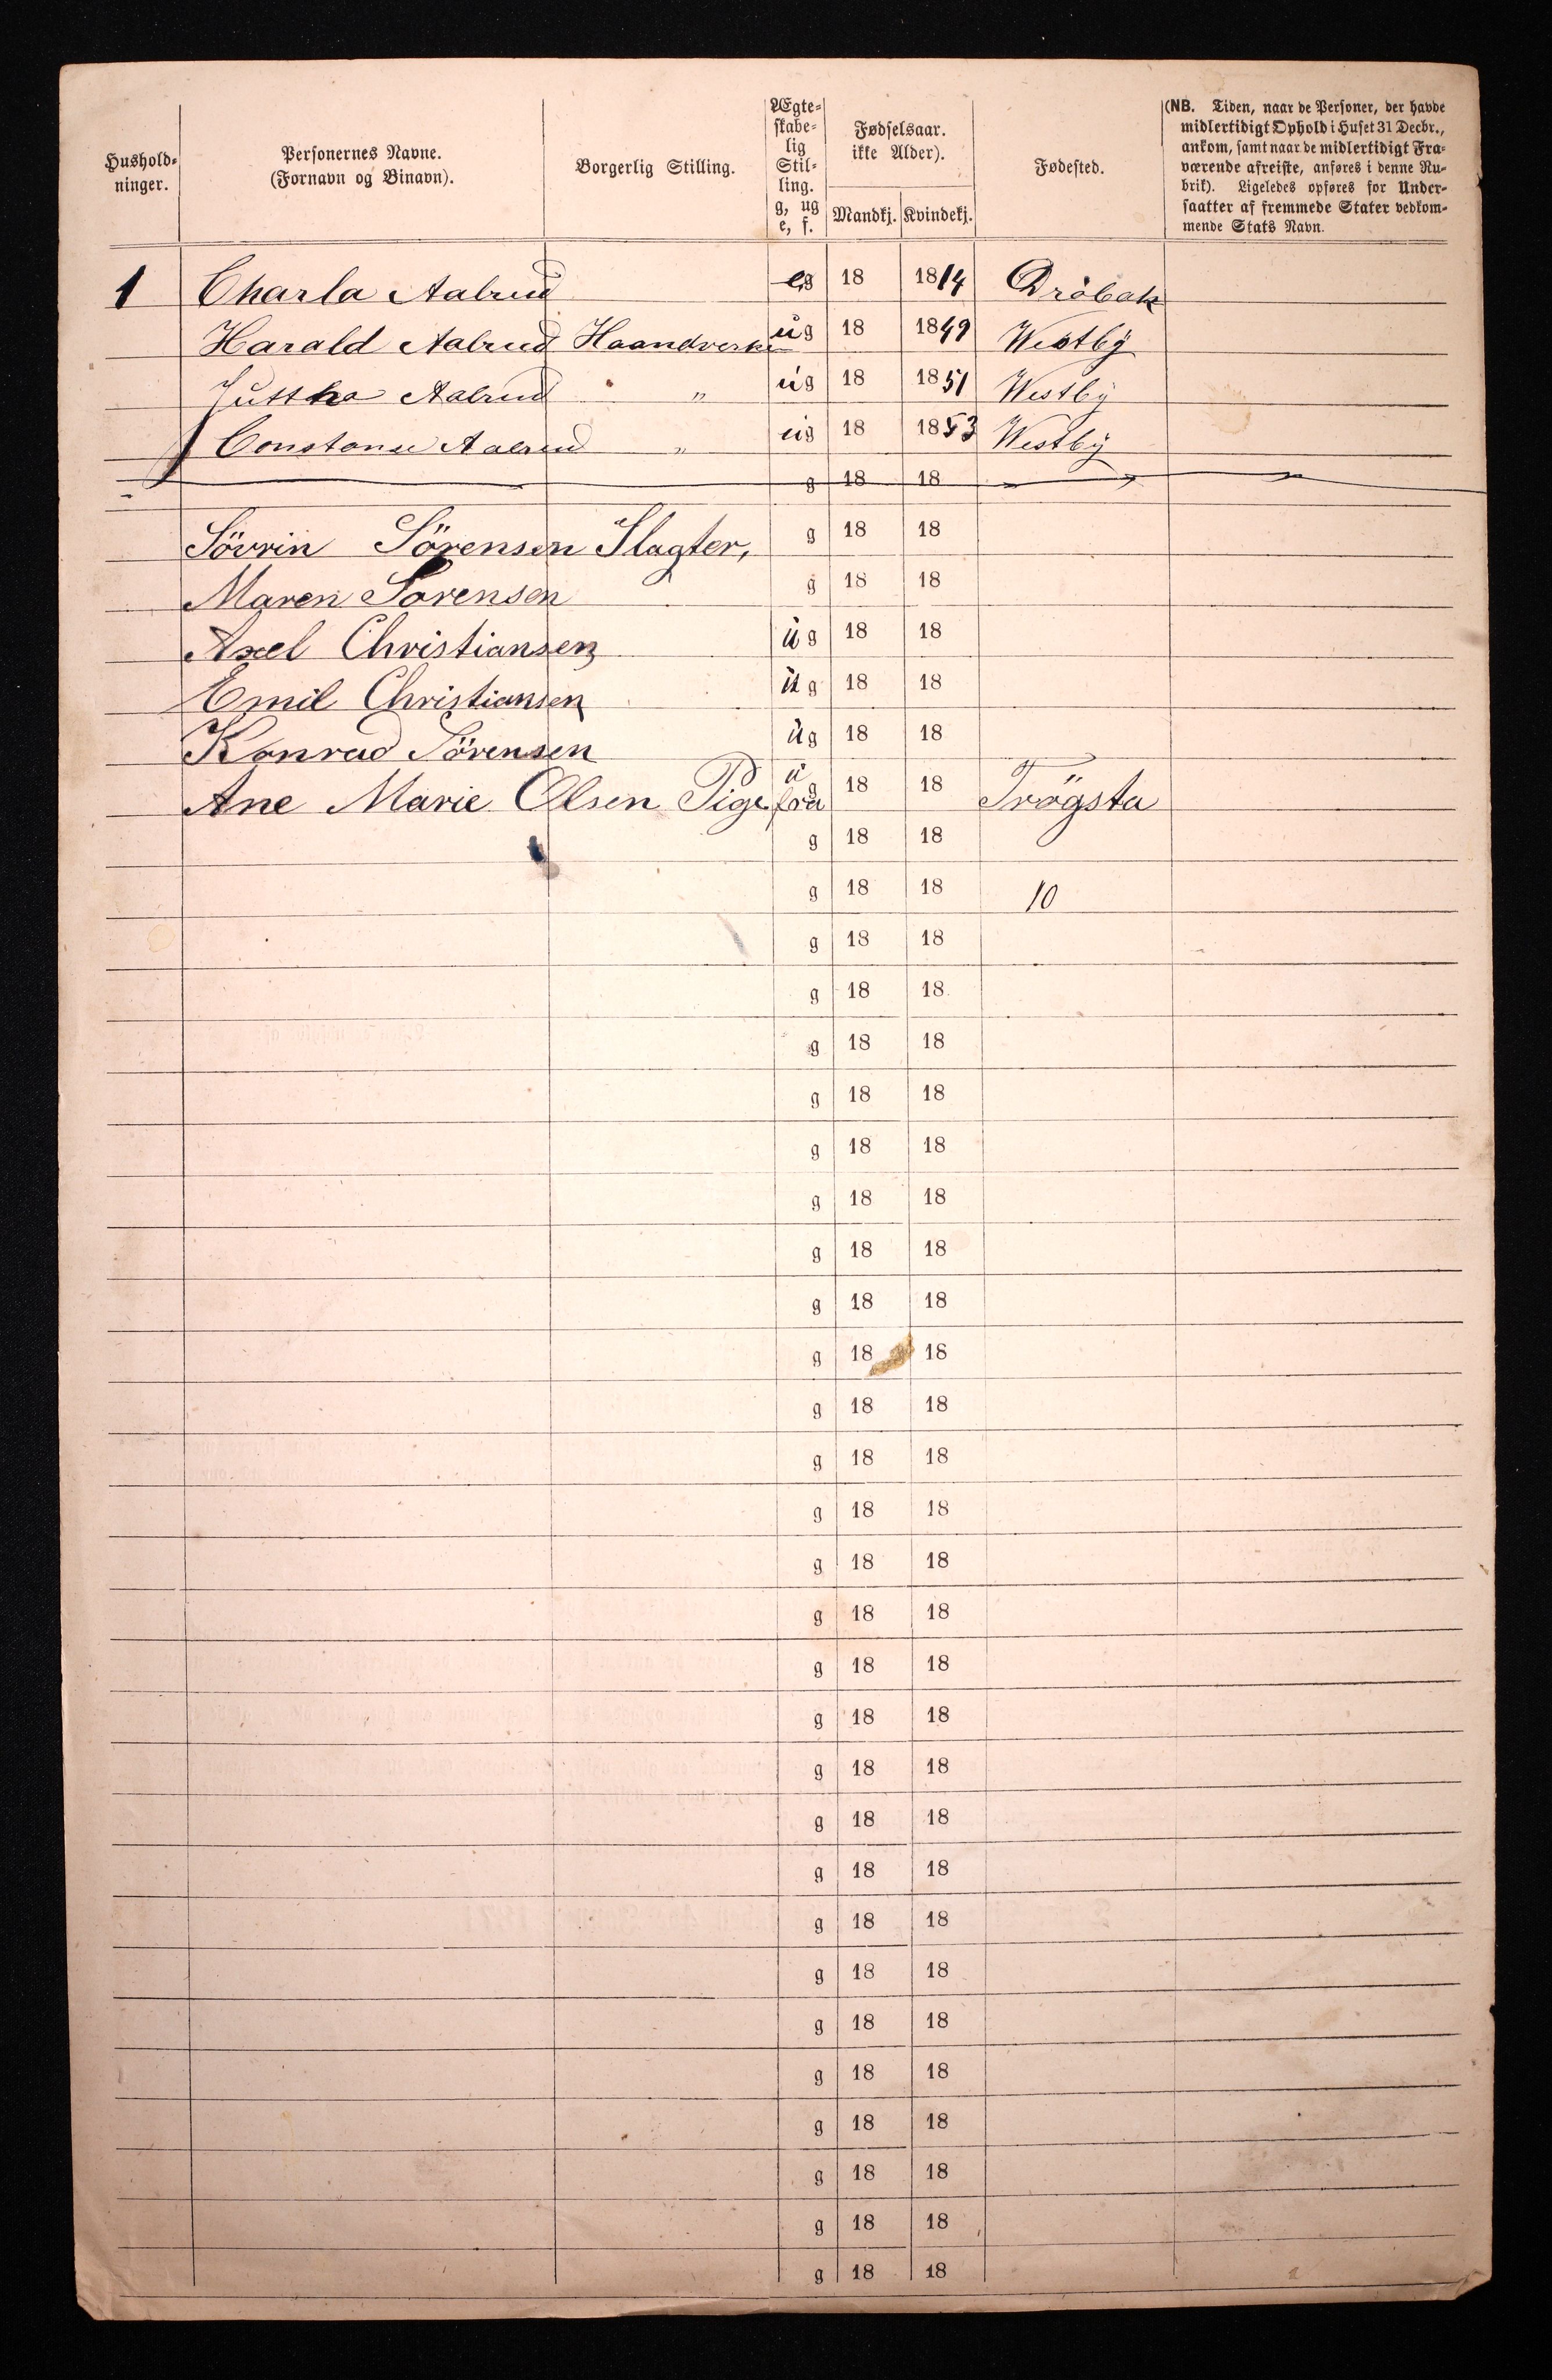 Hushold-
ninger.
Personernes Navne.
(Fornavn og Binavn).
Borgerlig Stilling.
Ægte-
skabe-
lig
Stil-
ling.
g, ug
e, f.
Fødselsaar.
ikke Alder).
Mandkj. Kvindekj.
Fødested.
(NB. Tiden, naar de Personer, der havde
midlertidigt Ophold i Huset 31 Decbr.,
ankom, samt naar de midlertidigt Fra-
værende afreiste, anføres i denne Ru-
brik). Ligeledes opføres for Under-
saatter af fremmede Stater vedkom-
mende Stats Navn.
1 Charla Aalrud eg 18 1814 Dröbak
Harald Aalrud Haandverker ug 18 1849 Westby
Juttha Aalrud " ug 18 1851 Westby
Constance Aalrud " ug 18 1853 Westby
g 18 18
Sövrin Sörensen Slagter, g 18 18
Maren Sorensen g 18 18
Axel Christiansen ug 18 18
Emil Christiansen ug 18 18
Konrad Sörensen ug 18 18
Ane Marie Olsen Pige fra ug 18 18 Trögsta
g 18 18
g 18 18 10
g 18 18
g 18 18
g 18 18
g 18 18
g 18 18
g 18 18
g 18 18
g 18 18
g 18 18
g 18 18
g 18 18
g 18 18
g 18 18
g 18 18
g 18 18
g 18 18
g 18 18
g 18 18
g 18 18
g 18 18
g 18 18
g 18 18
g 18 18
g 18 18
g 18 18
g 18 18
g 18 18